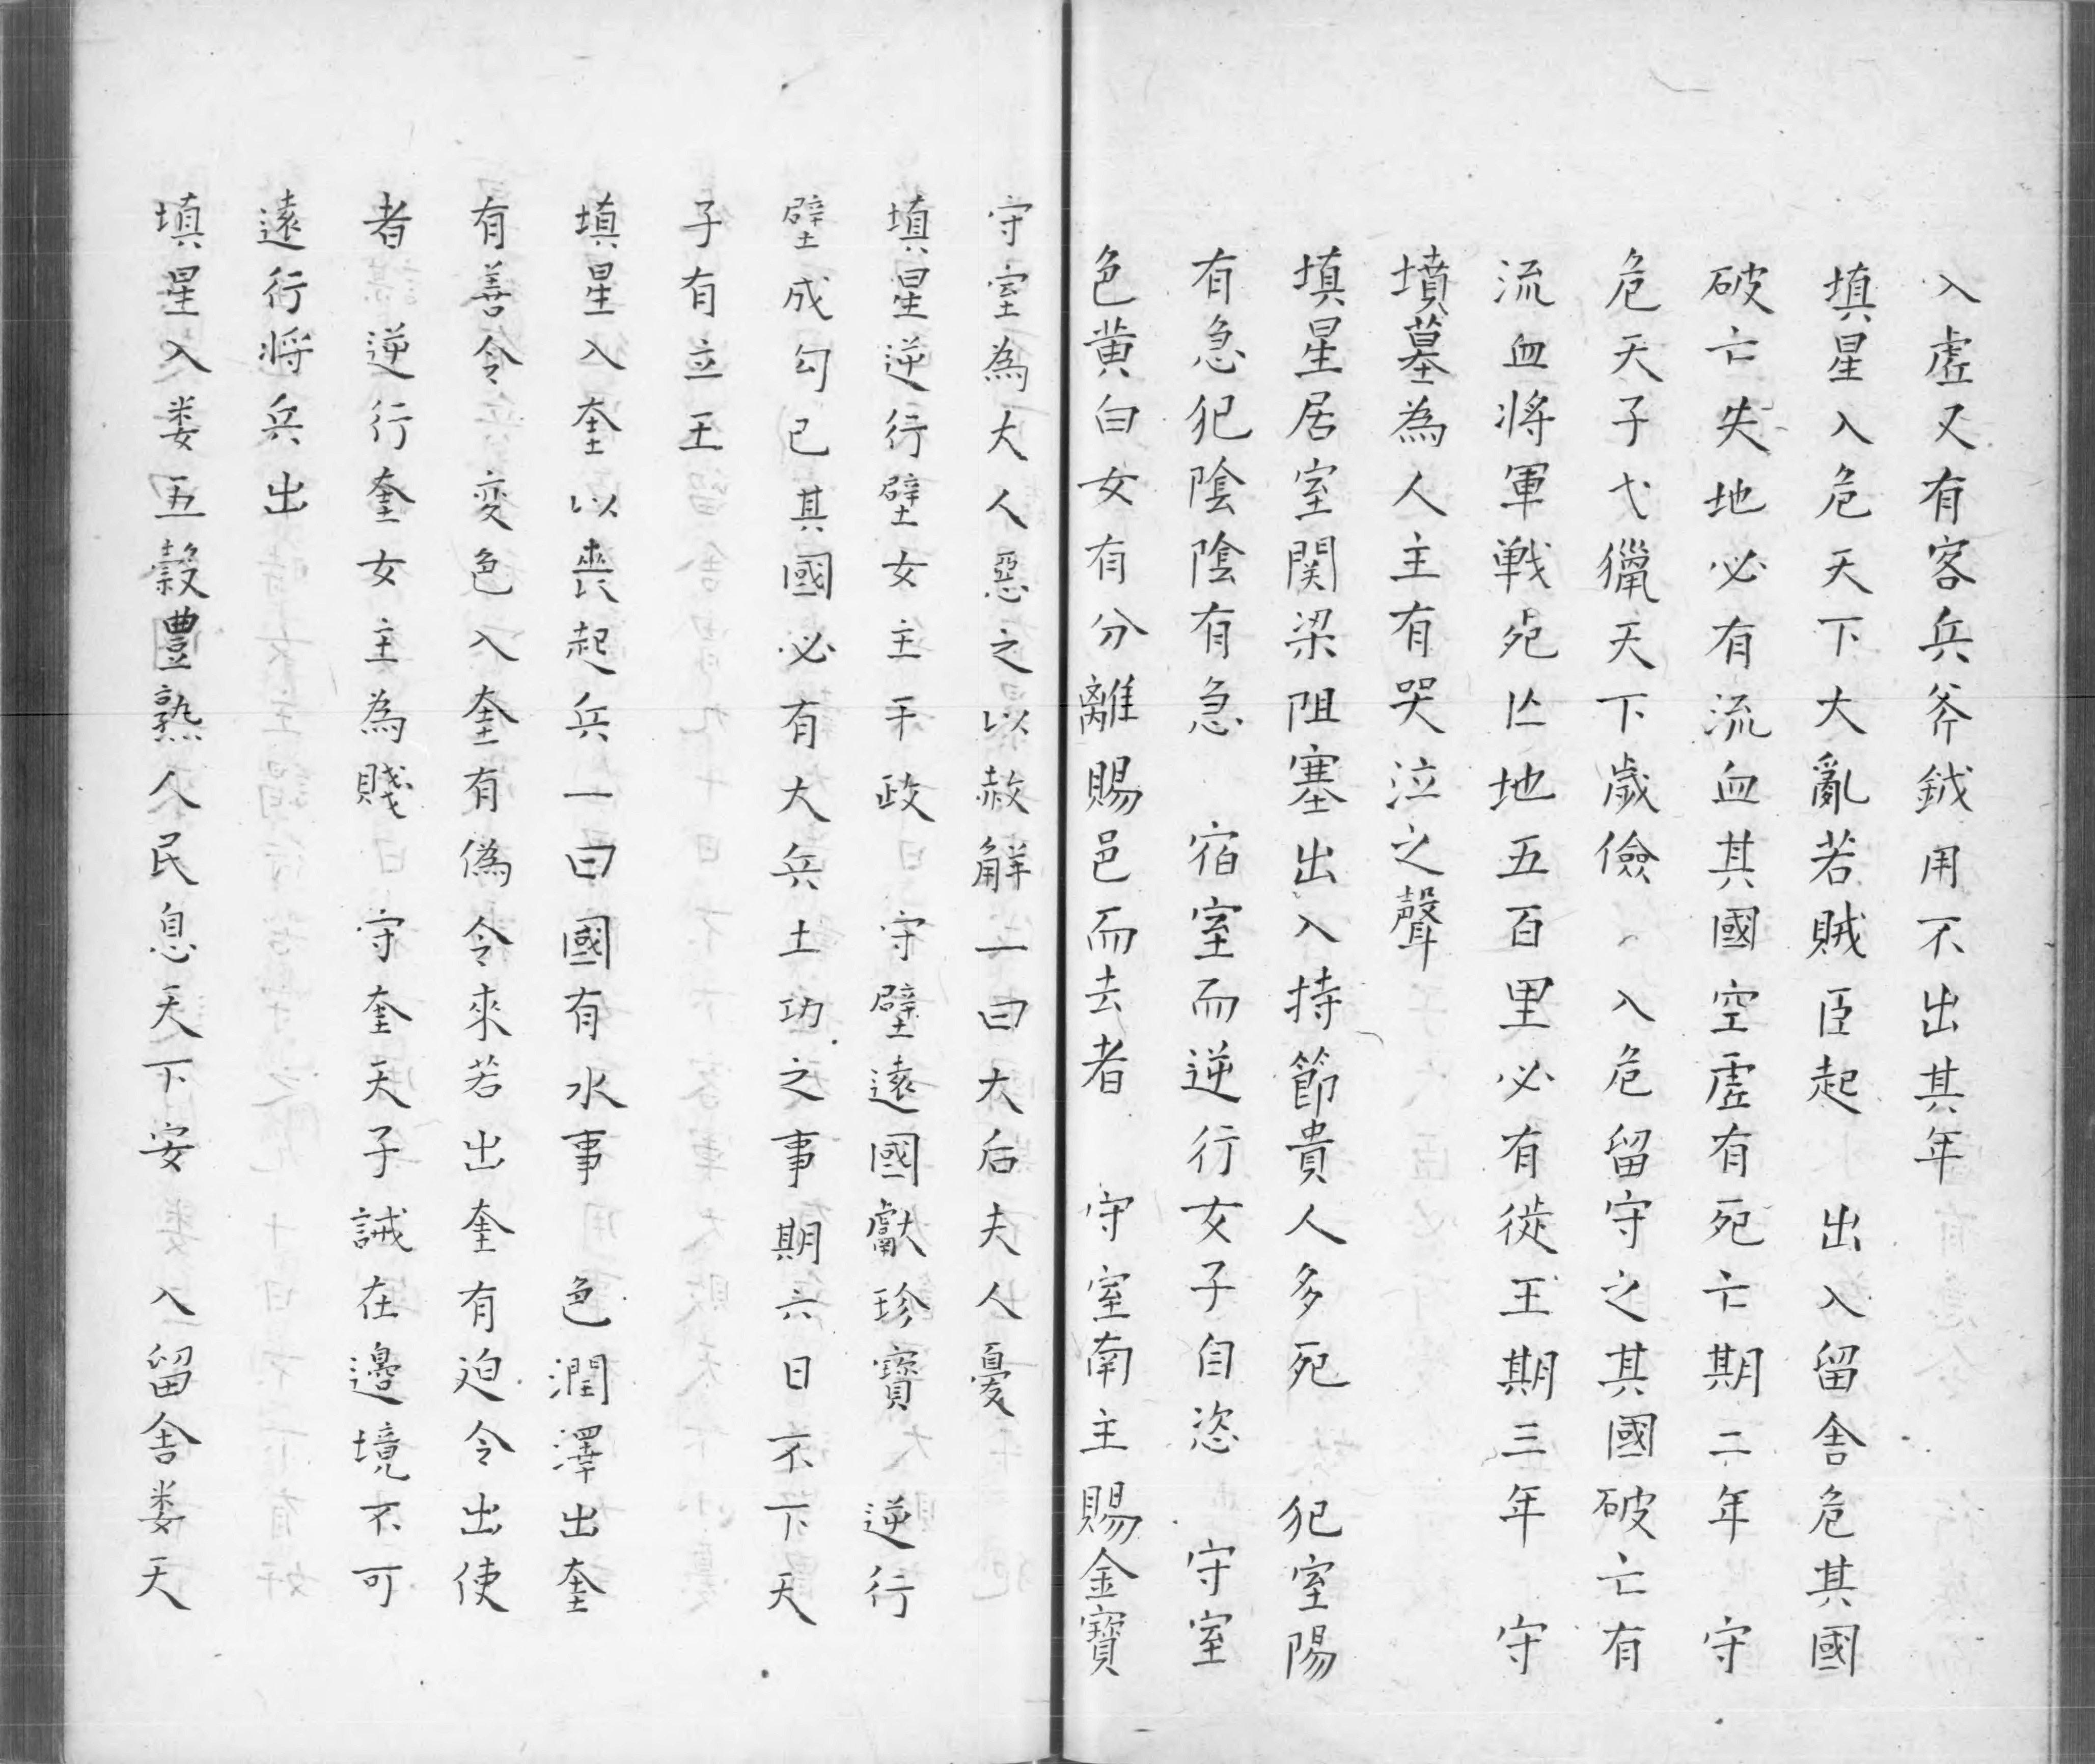 入虛又有客兵斧鉞用不出其年
填星入危天下大亂若賊臣起　出入留舍危其國
破亡失地必有流血其國空虛有死亡期二年　守
危天子弋獵天下歲儉　入危留守之其國破亡有
流血将軍戦死亡地五百里必有徙王期三年　守
墳墓為人主有哭泣之聲
填星居室関梁阻塞出入持節貴人多死　犯室陽
有急犯陰陰有急　宿室而逆行女子自恣　守室
色黄白女有分離賜邑而去者　守室南主賜金寶
守室為大人惡之以赦解一曰大后夫人憂
填星逆行壁女主干政　守壁遠國獻珍寶　逆行
壁成勾已其國必有大兵土功之事期六日不下天
子有立王
填星入奎以喪起兵一曰國有水事　色潤澤出奎
有善令　変色入奎有偽令來若出奎有迫令出使
者　逆行奎女主為賤　守奎天子誡在邊境不可
遠行将兵出
填星入娄五穀豊熟人民息天下安　入留舍娄天